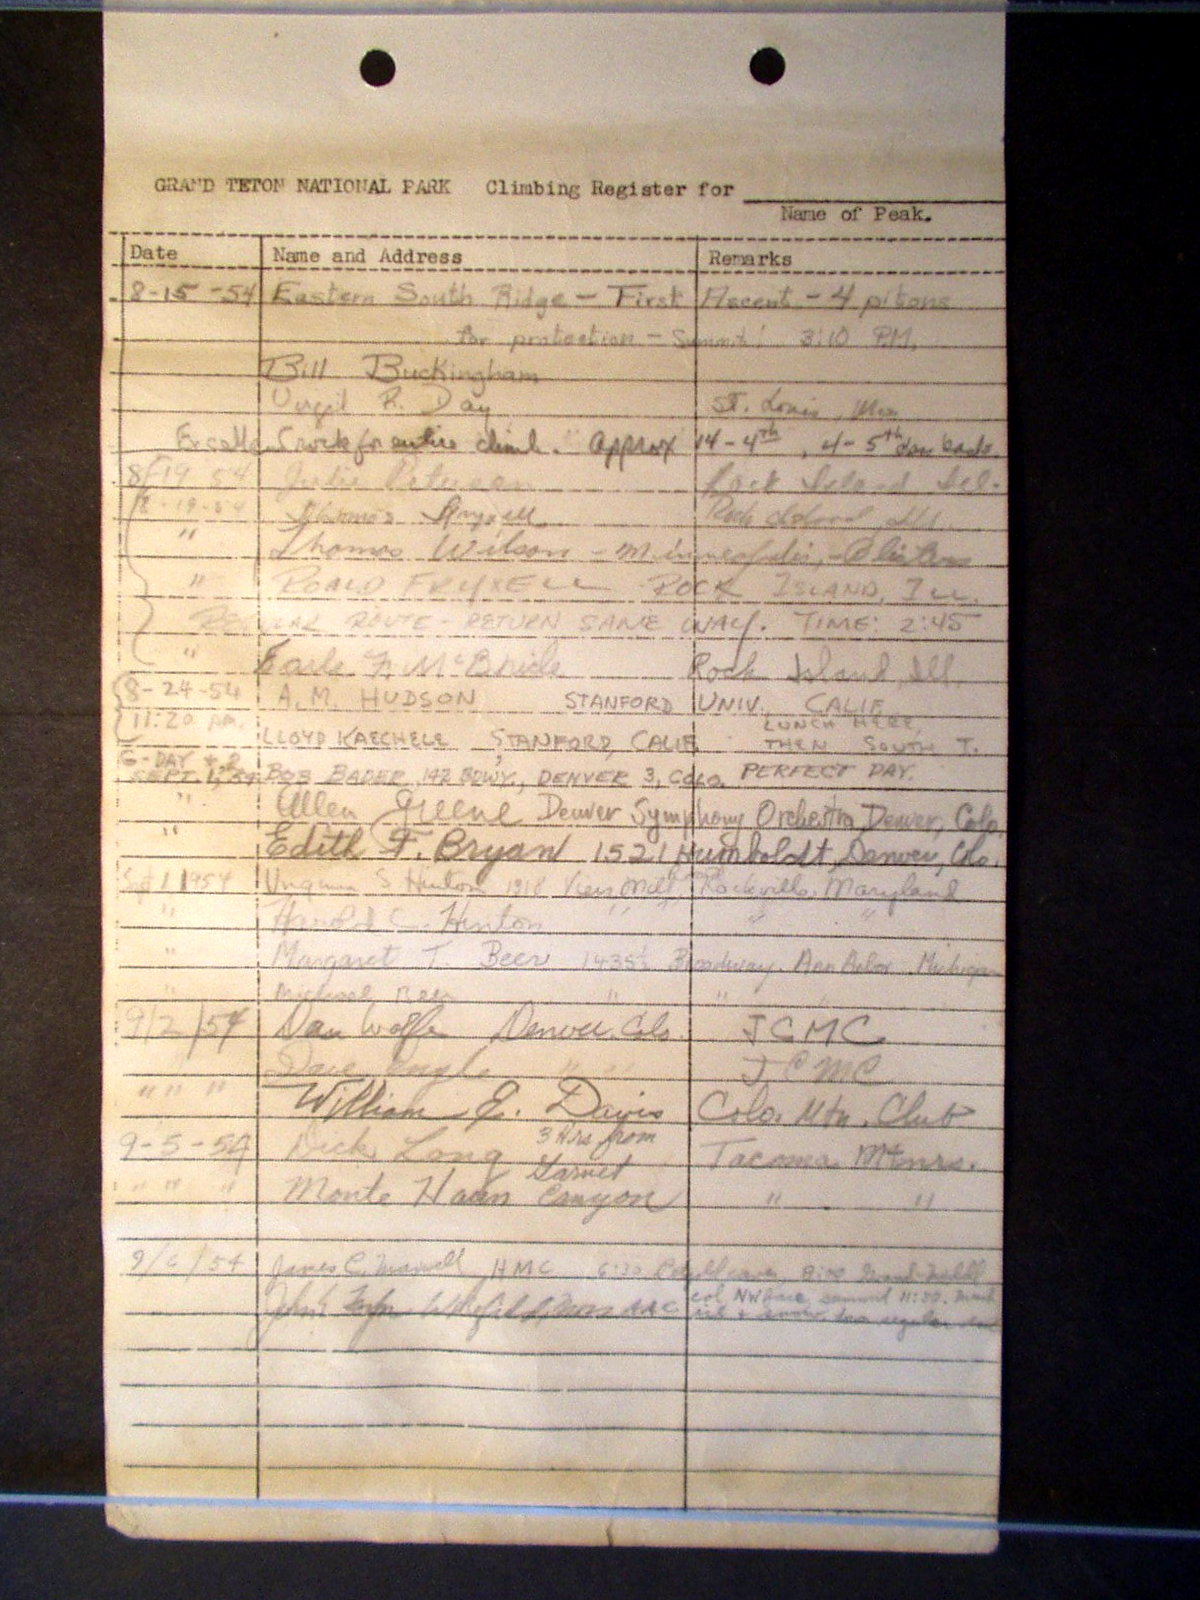 GRAND TETON NATIONAL PARK Climbing Register for
Name of Peak.
Date Name and Address Remarks
8-15-54 Eastern South Ridge - First Ascent - 4 pitons
for protection - Summit! 3:10 PM.
Bill Buckingham
Virgil R. Day St. Louis,
rock for entire climb. Approx 14 - 4th, 4 - 5th
8/19 54 Rock Island
8-19-54 Rock Island, Ill.
" Thomas Wilson -
" ROALD FRYXELL ROCK ISLAND, ILL.
REGULAR ROUTE - RETURN SAME WAY. TIME: 2:45
" Earle F. McBride Rock Island, Ill.
8-24-54 A.M. HUDSON STANFORD UNIV. CALIF.
11:20 LUNCH HERE,
LLOYD KAECHELE, STANFORD, CALIF. THEN SOUTH T.
SEPT. 1, 54 BOB BADER 142 BDWY, DENVER 3, COLO. PERFECT DAY.
" Allen Greene Denver Symphony Orchestra Denver, Colo
" Edith F. Bryan 1521 Humboldt, Denver, Colo.
Sept 1 1954 S. Hinton 1918 Rockville, Maryland
" Harold C. Hinton " " "
" Margaret T. Beer 1435½ Broadway Ann Arbor Michigan
" Michael Beer " " "
9/2/54 Dan Wolfe Denver, Colo. JCMC
Dave " " JCMC
" " " William E. Davis Colo. Mtn. Club
9-5-54 Dick Long 3 hrs from Tacoma Mtnrs.
Garnet
" " " Monte Haun Canyon " "
9/6/54 James C. Maxwell HMC 6:30
col NW face summit 11:30.